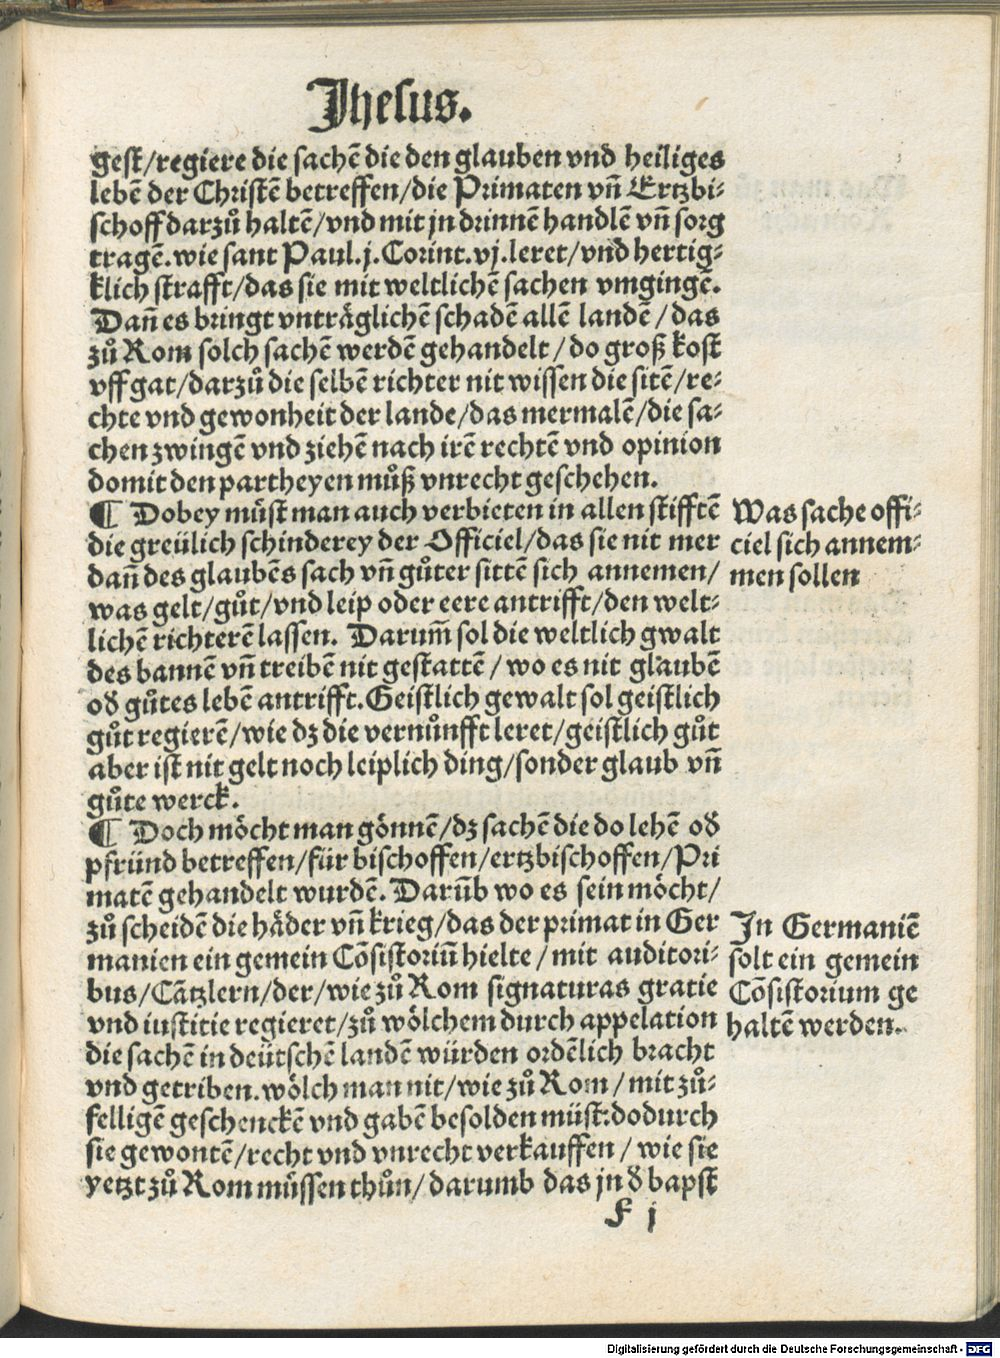 Jhesus.
gest/regiere die sachē die den glauben vnd heiliges
lebē der Christē betreffen/die Primaten vn̄ Ertzbi⸗
schoff darzů haltē/vnd mit jn drinnē handlē vn̄ sorg
tragē.wie sant Paul.j.Corint.vj.leret/vnd hertig⸗
klich strafft/das sie mit weltlichē sachen vmgingē.
Dan̄ es bringt vnträglichē schadē allē landē/das
zů Rom solch sachē werdē gehandelt/do groß kost
vff gat/darzů die selbē richter nit wissen die sitē/re⸗
chte vnd gewonheit der lande/das mermalē/die sa⸗
chen zwingē vnd ziehē nach irē rechtē vnd opinion
domit den partheyen můß vnrecht geschehen.
¶ Dobey müst man auch verbieten in allen stifftē
die greülich schinderey der Officiel/das sie nit mer
dan̄ des glaubēs sach vn̄ gůter sittē sich annemen/
was gelt/gůt/vnd leip oder eere antrifft/den welt⸗
lichē richterē lassen. Darum̄ sol die weltlich gwalt
des bannē vn̄ treiben nit gestattē/wo es nit glaubē
oď gůtes lebē antrifft.Geistlich gewalt sol geistlich
gůt regierē/wie dz die vernůnfft leret/geistlich gůt
aber ist nit gelt noch leiplich ding/sonder glaub vn̄
gůte werck.
¶ Doch möcht man gönnē/dz sachē die do lehē oď
pfründ betreffen/für bischoffen/ertzbischoffen/Pri
matē gehandelt wurdē. Darūb wo es sein möcht/
zů scheidē die häder vn̄ krieg/das der primat in Ger
manien ein gemein Cōsistoriū hielte/mit auditori⸗
bus/Cātzlern/der/wie zů Rom signaturas gratie
vnd iustitie regieret/zů wölchem durch appelation
die sachē in deütschē landē würden ordēlich bracht
vnd getriben.wölch man nit/wie zů Rom/mit zů⸗
felligē geschenckē vnd gabē besolden müst:dodurch
sie gewontē/recht vnd vnrecht verkauffen/wie sie
yetzt zů Rom müssen thůn/darumb das jn ď bapst
F j
Was sache offi⸗
ciel sich annem⸗
men sollen
In Germaniē
solt ein gemein
Cōsistorium ge
haltē werden.
Digitalisierung gefördert durch die Deutsche Forschungsgemeinschaft - DFG